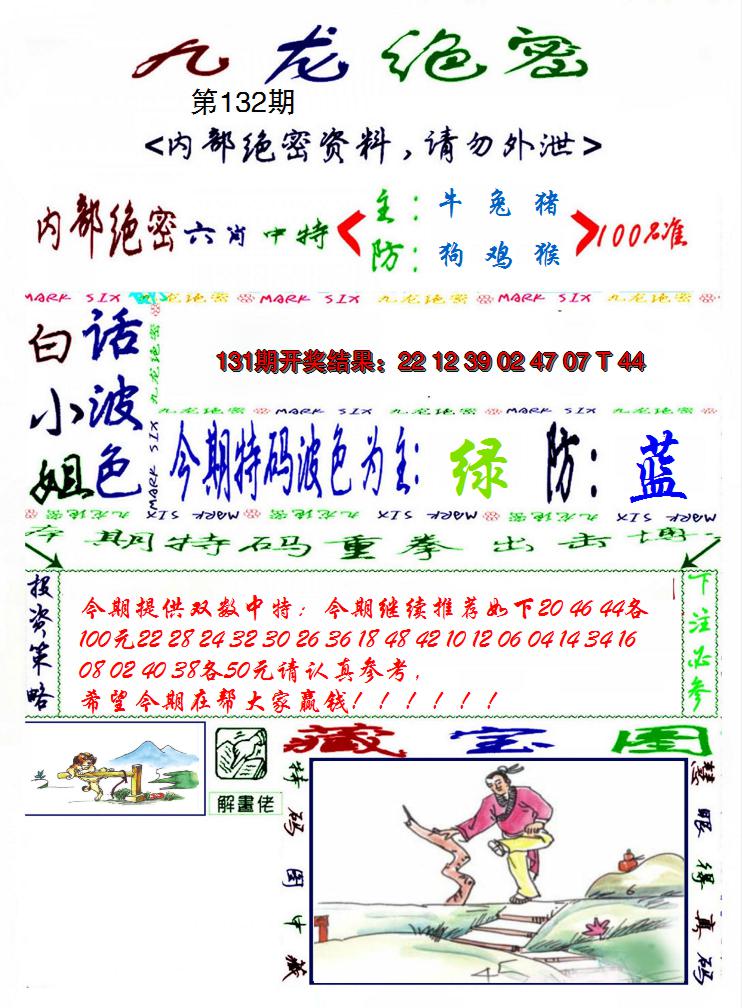 九龙绝密
第132期
<内部绝密资料,请勿外泄>
内部绝密六肖中特
主：牛 兔 猪
防：狗 鸡 猴
100%准
MARK SIX 九龙绝密 MARK SIX 九龙绝密 MARK SIX 九龙绝密
九龙绝密 MARK SIX
白小姐
话波色
131期开奖结果：22 12 39 02 47 07 T 44
九龙绝密 MARK SIX 九龙绝密 MARK SIX 九龙绝密
今期特码波色为主：绿 防：蓝
MARK SIX 九龙绝密 MARK SIX 九龙绝密 MARK SIX
本期特码重拳出击
投资策略
今期提供双数中特：今期继续推荐如下20 46 44各
100元22 28 24 32 30 26 36 18 48 42 10 12 06 04 14 34 16
08 02 40 38各50元请认真参考,
希望今期在帮大家赢钱！！！！！！
下注必参
解畫佬
藏宝图
特码图中藏
慧眼得真码
6
45